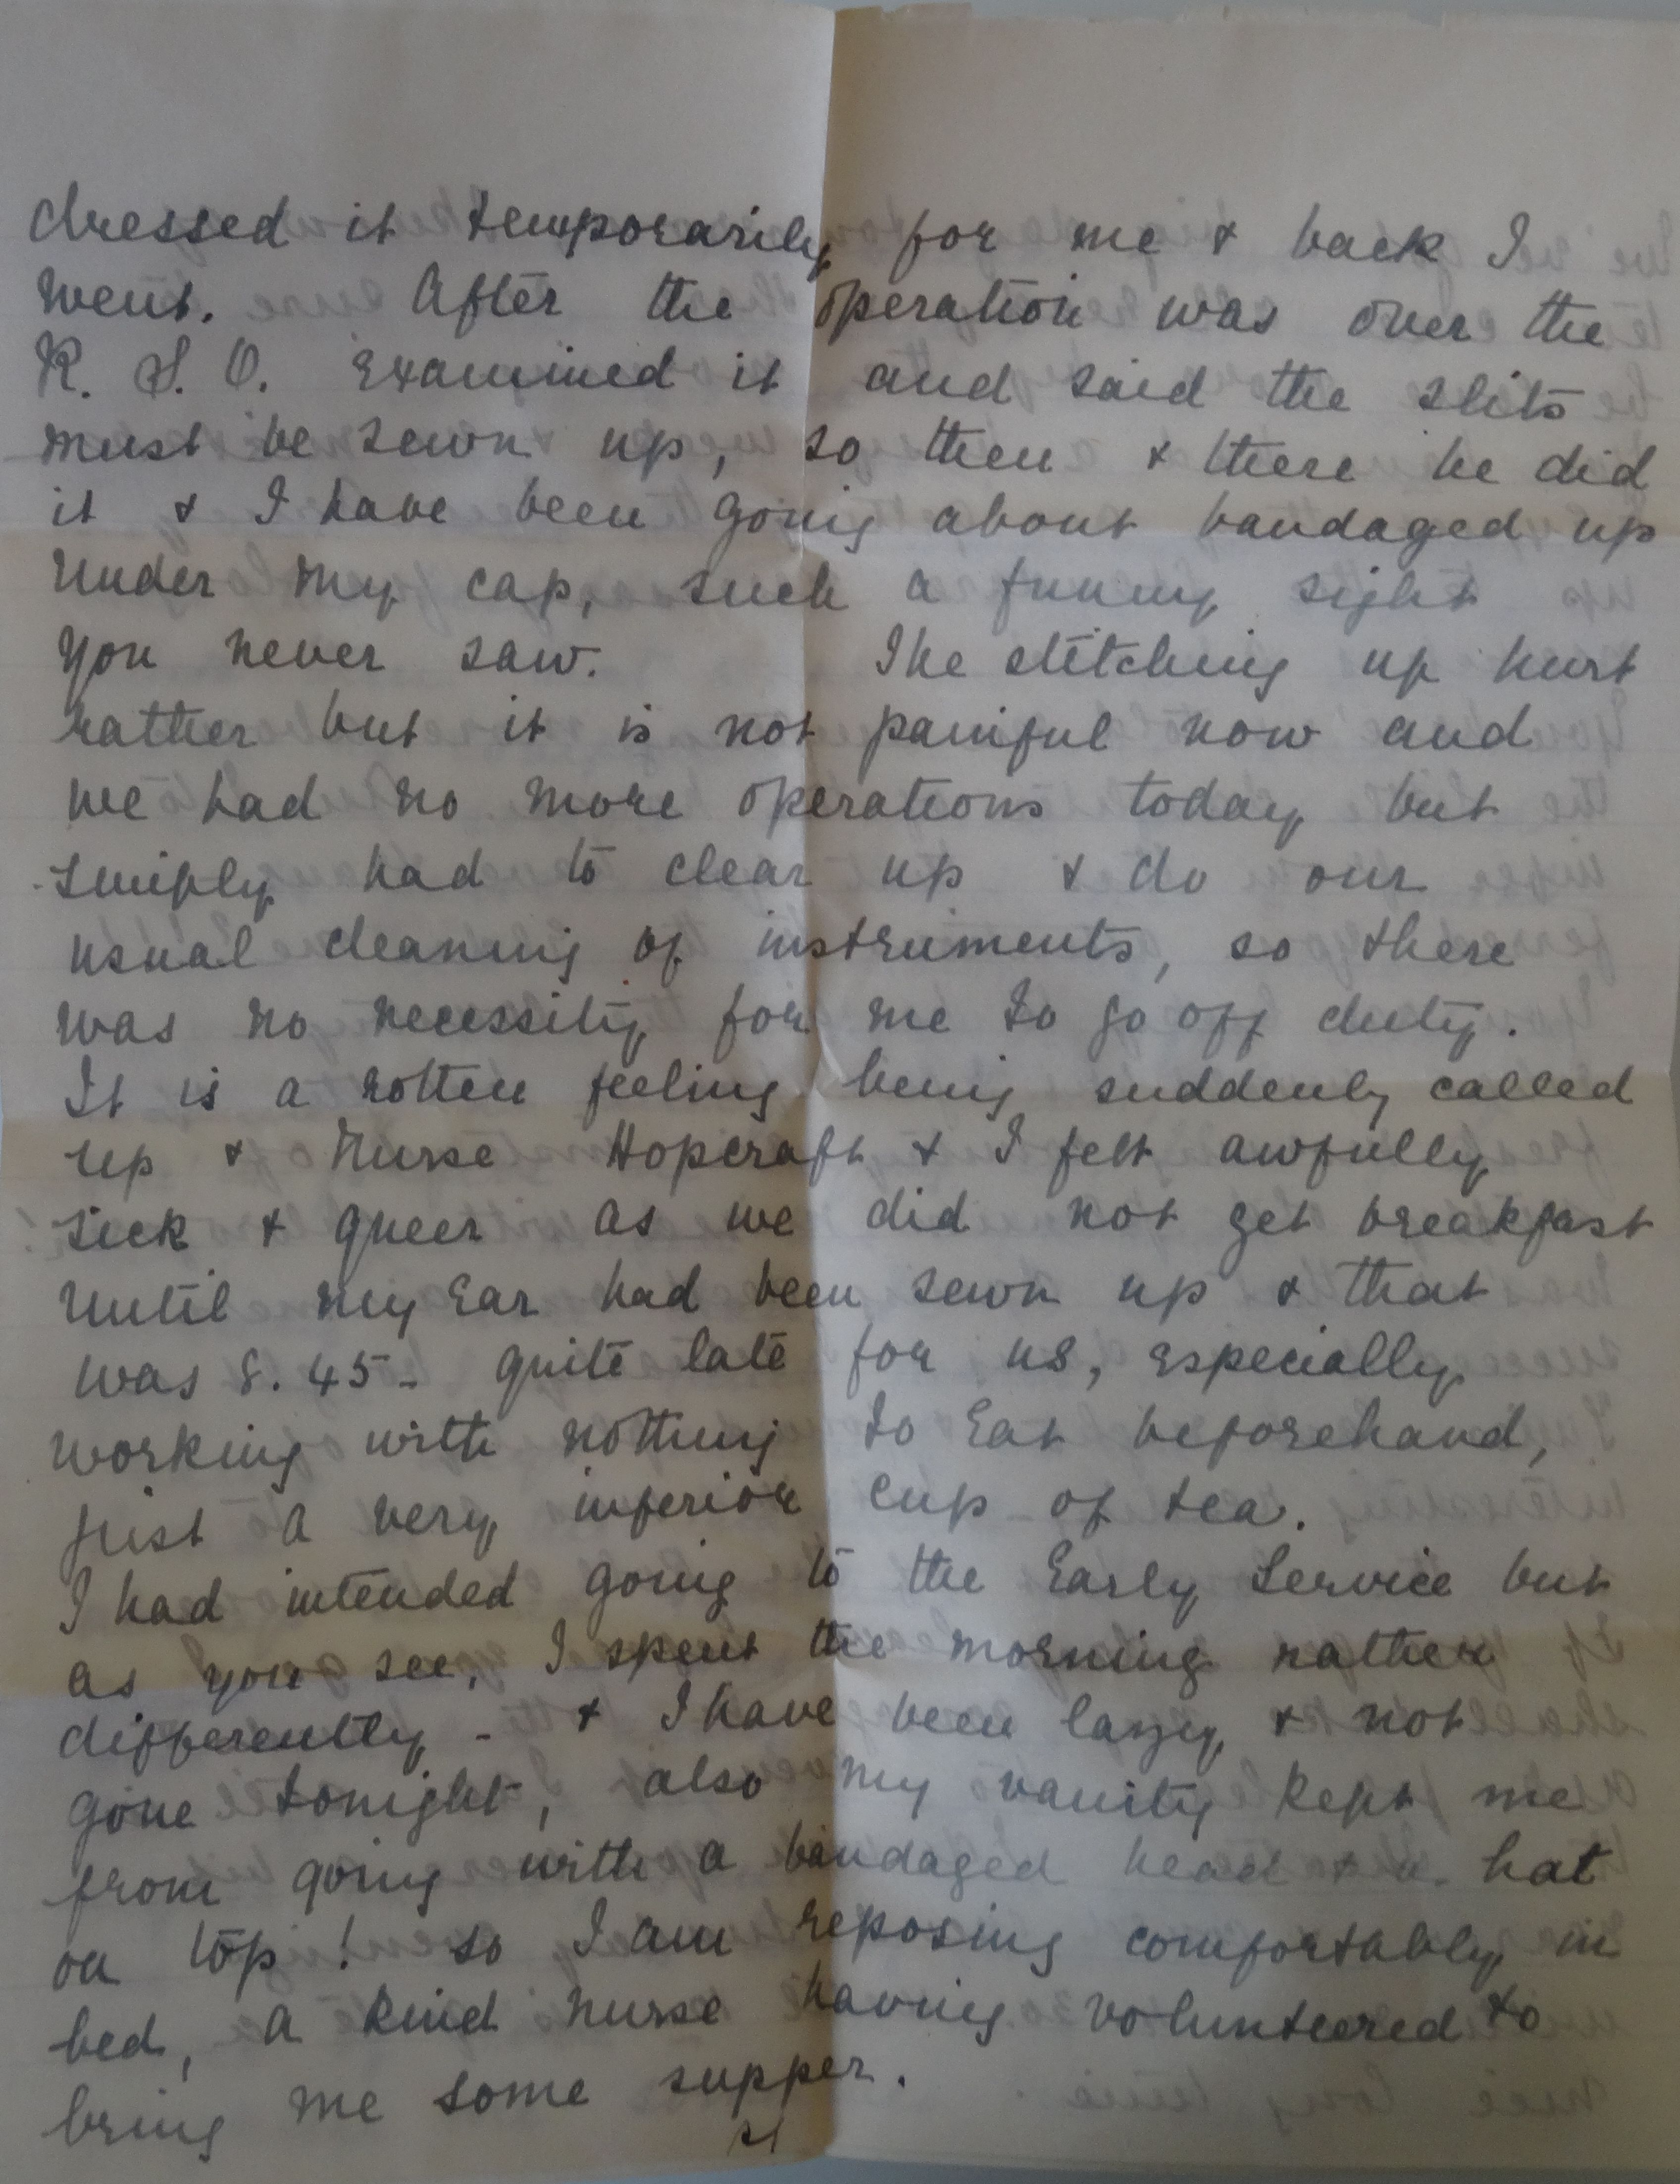 dressed it temporarily for me & back I
went. After the operation was over the
R. S. O. examined it and said the slits
must be sewn up, so then & there he did
it & I have been going about bandaged up
under my cap, such a funny sight
you never saw. The stitching up hurt
rather but it is not painful now and
we had no more operations today but
simply had to clear up & do our
usual cleaning of instruments, so there
was no necessity for me to go off duty.
It is a rotten feeling being suddenly called
up & Nurse Hopcraft & I felt awfully
sick & queer as we did not get breakfast
until my ear had been sewn up & that
was 8.45 - quite late for us, especially
working with nothing to eat beforehand,
just a very inferior cup of tea.
I had intended going to the Early Service but
as you see, I spent the morning rather
differently - & I have been lazy & not
gone tonight, also my vanity kept me
from going with a bandaged head & a hat
on top! so I am reposing comfortably in
bed, a kind nurse having volunteered to
bring me some supper.